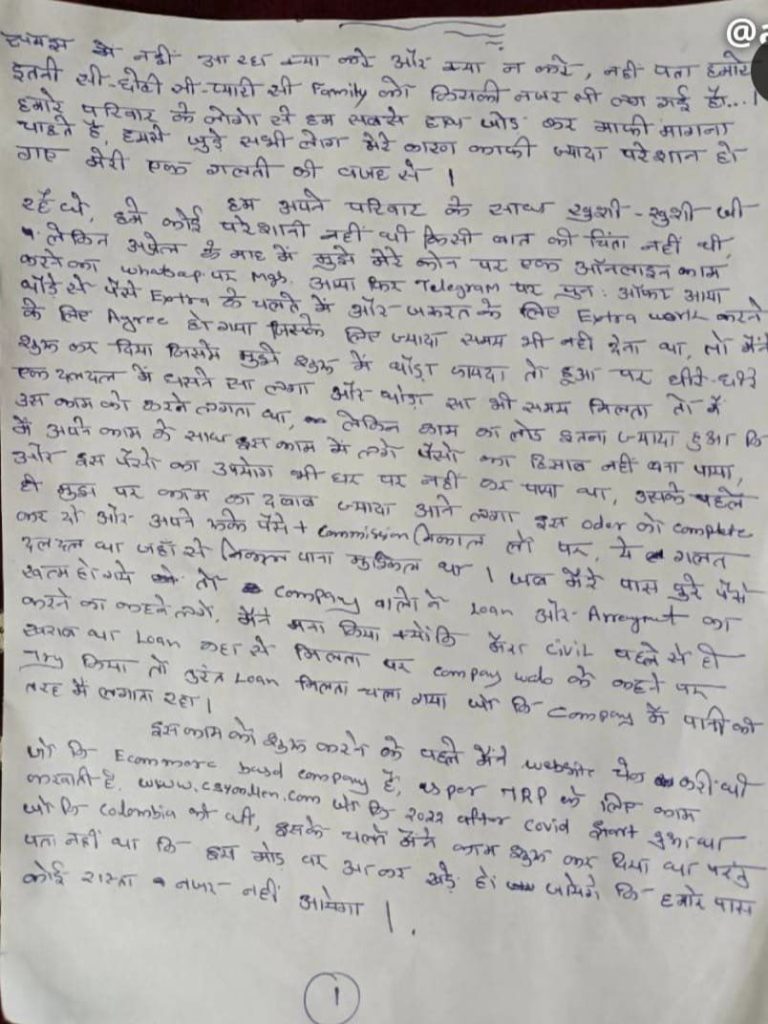 @a
समझ में नहीं आ रहा क्या करे और क्या न करे, नहीं पता हमारे
इतनी सी-छोटी सी-प्यारी सी Family को किसकी नजर सी लग गई है...।
हमारे परिवार के लोगो से हम सबसे हाथ जोड़ कर माफी मांगना
चाहते है, हमसे जुड़े सभी लोग मेरे कारण काफी ज्यादा परेशान हो
गए मेरी एक गलती की वजह से।
हम अपने परिवार के साथ खुशी-खुशी जी
रहे थे, हमे कोई परेशानी नहीं थी किसी बात की चिंता नहीं थी,
लेकिन अप्रेल के माह में मुझे मेरे फोन पर एक ऑनलाइन काम
करने का whatsap पर Msg. आया फिर Telegram पर पुन: ऑफर आया
थोड़े से पैसे Extra के चलते में और जरूरत के लिए Extra work करने
के लिए Agree हो गया जिसके लिए ज्यादा समय भी नहीं देना था, तो मैंने
शुरू कर दिया जिसमे मुझे शुरू में थोड़ा फायदा तो हुआ पर धीरे-धीरे
एक दलदल में धसने सा लगा और थोड़ा सा भी समय मिलता तो में
उस काम को करने लगता था, लेकिन काम का लोड इतना ज्यादा हुआ कि
में अपने काम के साथ इस काम में लगे पैसो का हिसाब नहीं बना पाया,
और इस पैसो का उपयोग भी घर पर नहीं कर पाया था, उसके पहले
ही मुझ पर काम का दबाव ज्यादा आने लगा इस oder को complete
कर दो और अपने रुके पैसे + Commission निकाल लो पर, ये गलत
दलदल था जहाँ से निकल पाना मुश्किल था। जब मेरे पास पुरे पैसे
खत्म हो गये तो company वालो ने Loan और Arregmut का
करने का कहने लगे. मैंने मना किया क्योंकि मेरा civil पहले से ही
खराब था Loan कहा से मिलता पर company के कहने पर
Try किया तो तुरंत Loan मिलता चला गया जो कि Company में पानी की
तरह में लगाता रहा।
इस काम को शुरू करने के पहले मैंने website चेक करी थी
जो कि Ecommerc based company है, जो TRP के लिए काम
करवाती है. जो कि 2022 after covid start हुआ था
जो कि colombia की थी, इसके चलते मैंने काम शुरू कर दिया था परंतु
पता नहीं था कि इस मोड़ पर आ कर खड़े हो जायेगे कि हमारे पास
कोई रास्ता नजर नहीं आयेगा।.
1